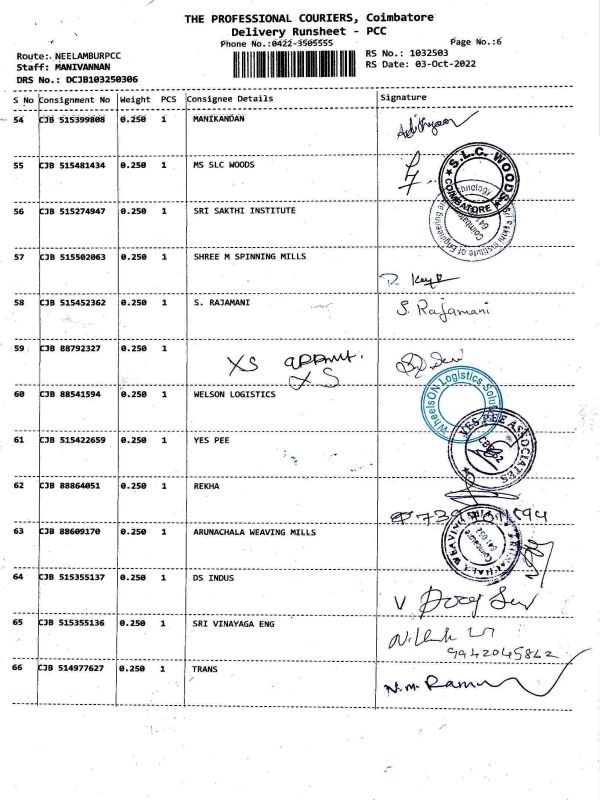 THE PROFESSIONAL COURIERS, Coimbatore
Delivery Runsheet - PCC
Phone No.:0422-3505555
Page No.:6
Route: NEELAMBURPCC
RS No.: 1032503
Staff: MANIVANNAN
RS Date: 03-Oct-2022
DRS No.: DCJB103250306
S No Consignment No Weight PCS Consignee Details Signature
54 CJB 515399808 0.250 1 MANIKANDAN
55 CJB 515481434 0.250 1 MS SLC WOODS
S.L.C. WOODS
COIMBATORE
56 CJB 515274947 0.250 1 SRI SAKTHI INSTITUTE
57 CJB 515502063 0.250 1 SHREE M SPINNING MILLS
58 CJB 515452362 0.250 1 S. RAJAMANI S. Rajamani
59 CJB 88792327 0.250 1
XS
XS
60 CJB 88541594 0.250 1 WELSON LOGISTICS
WheelsON Logistics Solu
61 CJB 515422659 0.250 1 YES PEE
YES PEE ASSOCIATES
62 CJB 88864051 0.250 1 REKHA
63 CJB 88609170 0.250 1 ARUNACHALA WEAVING MILLS
64 CJB 515355137 0.250 1 DS INDUS
65 CJB 515355136 0.250 1 SRI VINAYAGA ENG
9942045842
66 CJB 514977627 0.250 1 TRANS